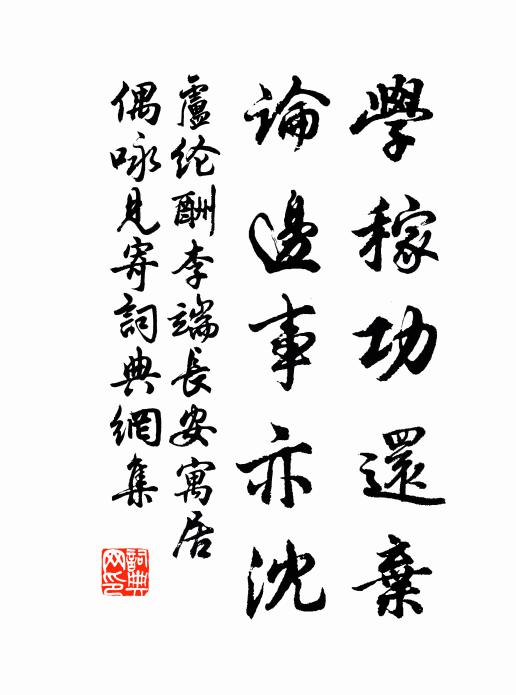 學稼功還棄
論邊事亦沈
盧纶酬李端長安寓居
偶咏見寄詞典網集
詞典
网印